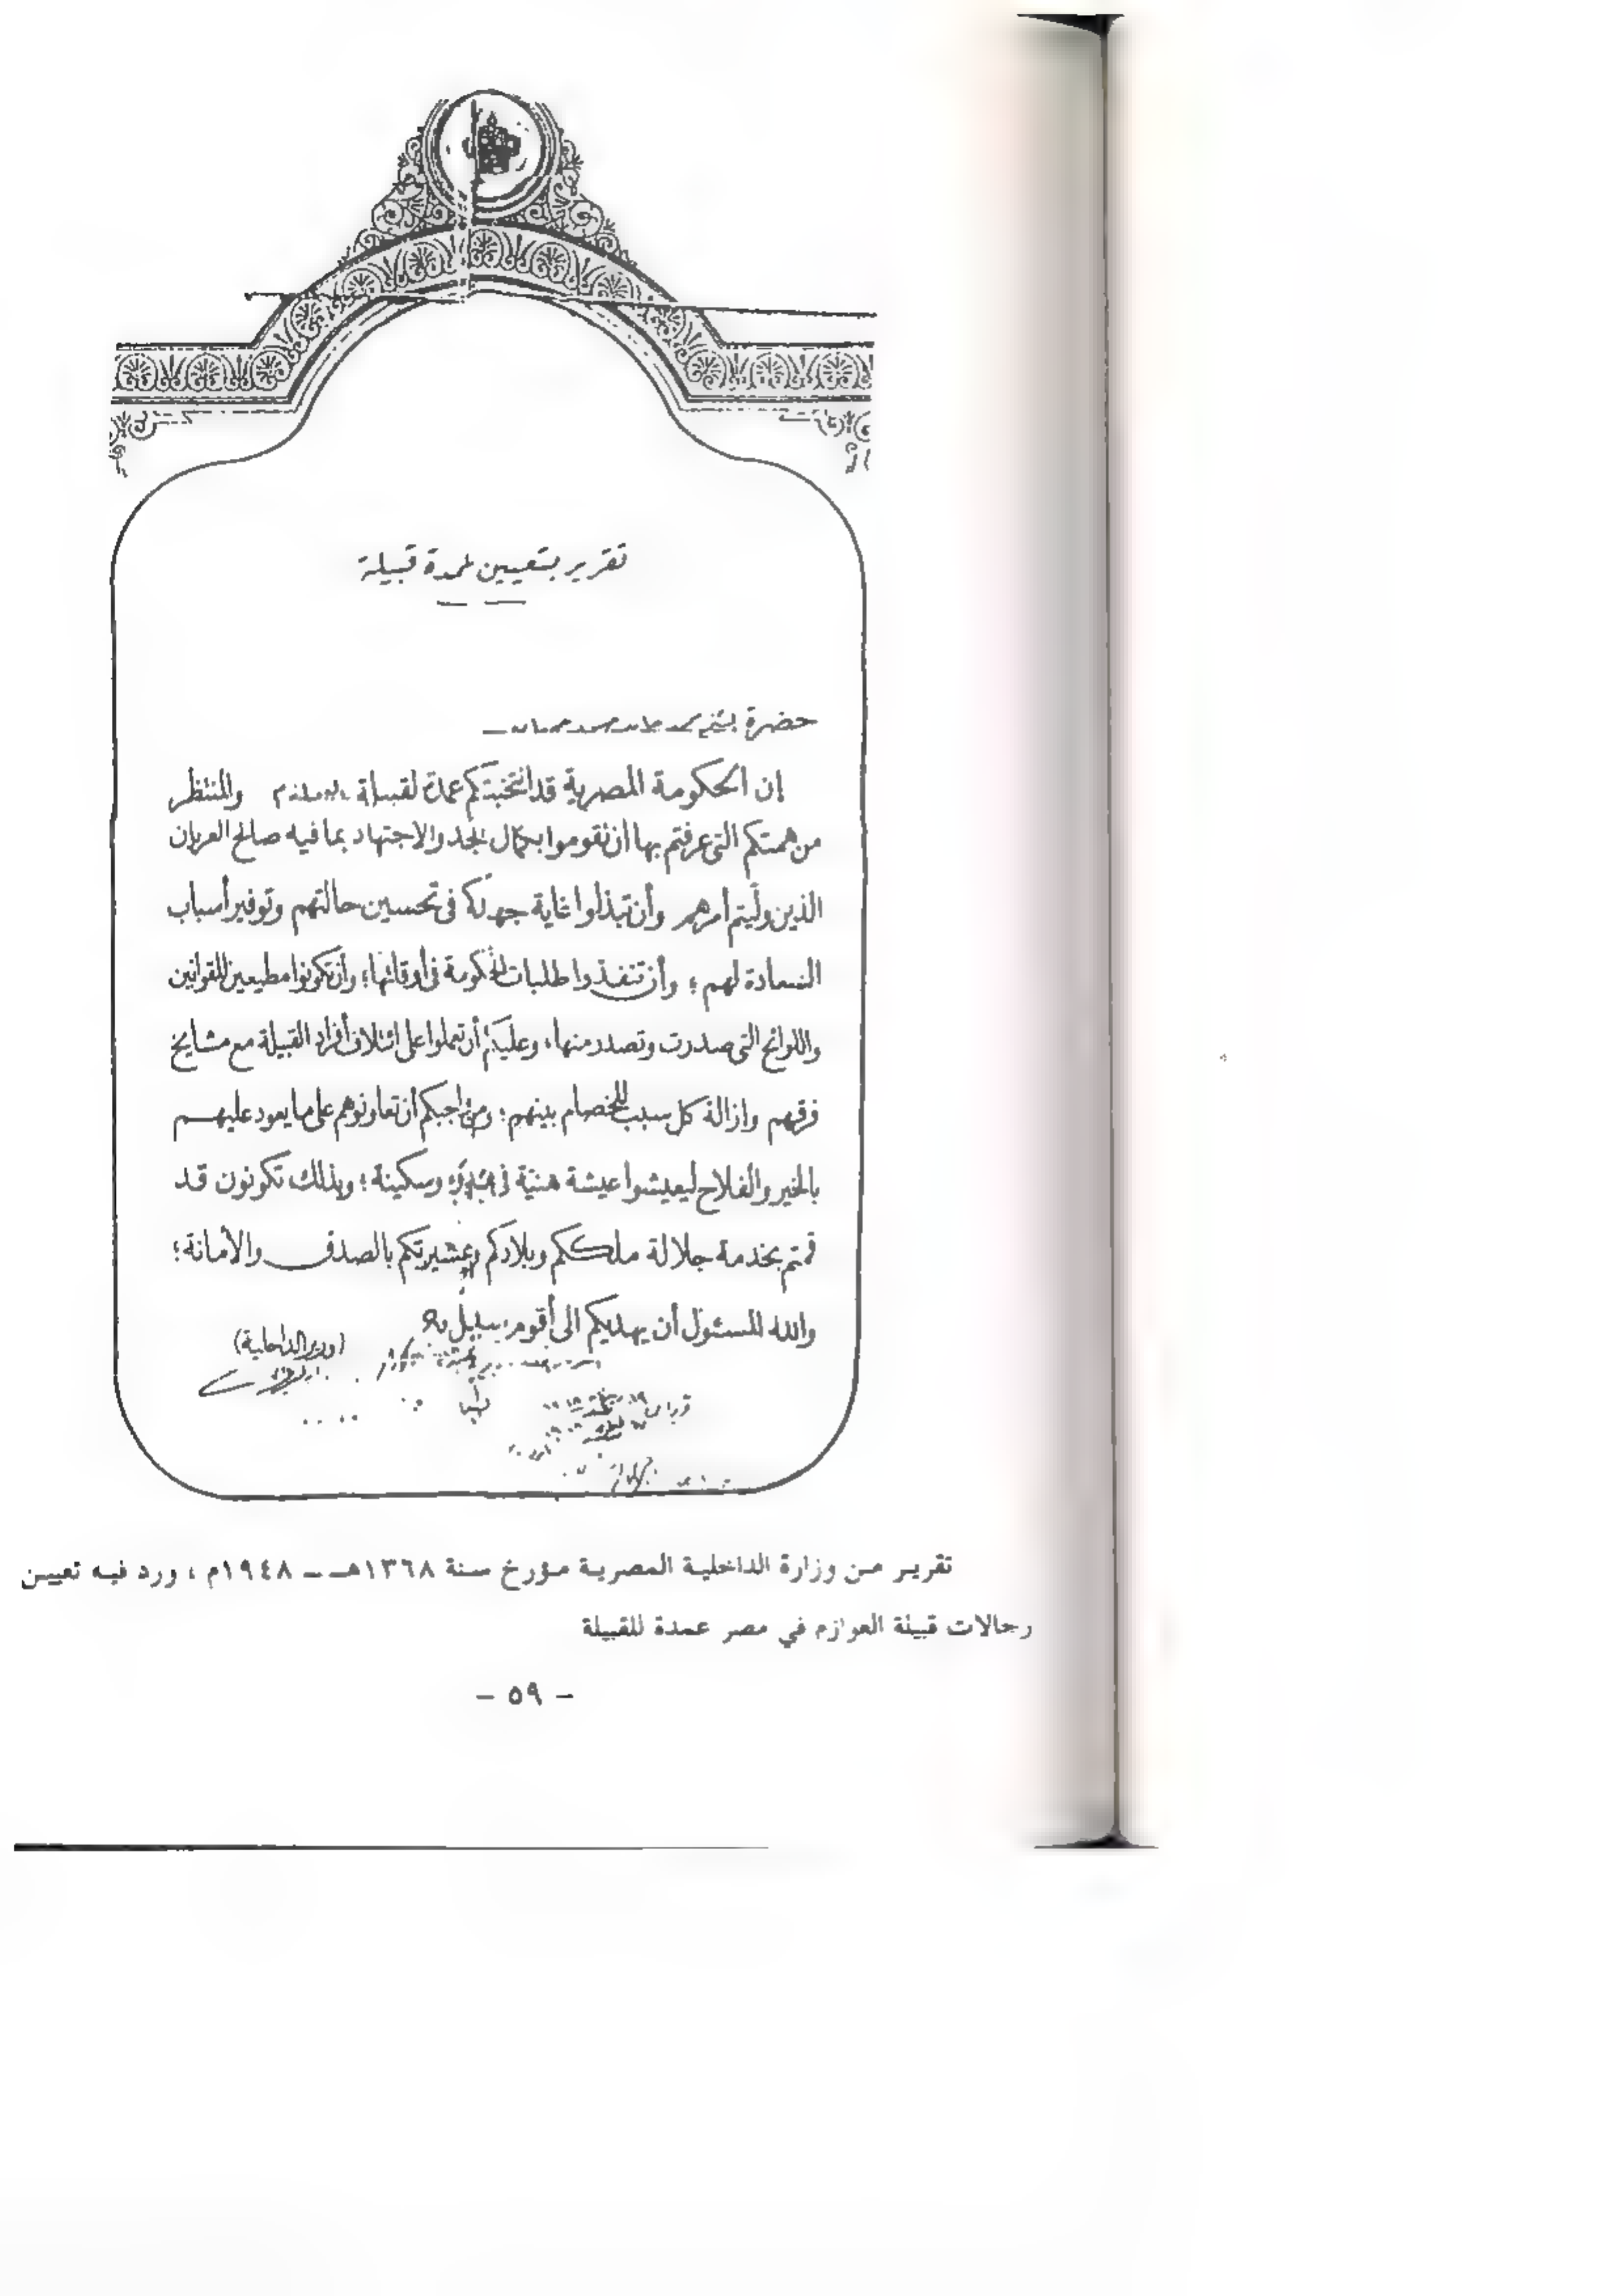 تقرير بتعيين عمدة قبيلة
حضرة
إن الحكومة المصرية قد انتخبتكم عمدة لقبيلة والمنتظر
من همتكم التى عرفتم بها أن تقوموا بكمال الجد والاجتهاد بما فيه صالح العربان
الذين وليتم أمرهم وأن تبذلوا غاية جهدكم فى تحسين حالتهم وتوفير أسباب
السعادة لهم ؛ وأن تنفذوا طلبات الحكومة فى أوقاتها ؛ وأن تكونوا مطيعين للقوانين
واللوائح التى صدرت وتصدر منها ، وعليكم أن تعملوا على ائتلاف أفراد القبيلة مع مشايخ
فرقهم وازالة كل سبب للخصام بينهم ؛ ومن واجبكم أن تعاونوهم على ما يعود عليهم
بالخير والفلاح ليعيشوا عيشة هنية فى وسكينة ؛ وبذلك تكونون قد
قمتم بخدمة جلالة ملككم وبلادكم وعشيرتكم بالصدق والأمانة ؛
والله المسئول أن يهديكم الى أقوم سبيل
(وزير الداخلية)
تقرير من وزارة الداخلية المصرية مؤرخ سنة ١٣٦٨هـ - ١٩٤٨م ، ورد فيه تعيين
رجالات قبيلة العوازم في مصر عمدة للقبيلة
- ٥٩ -